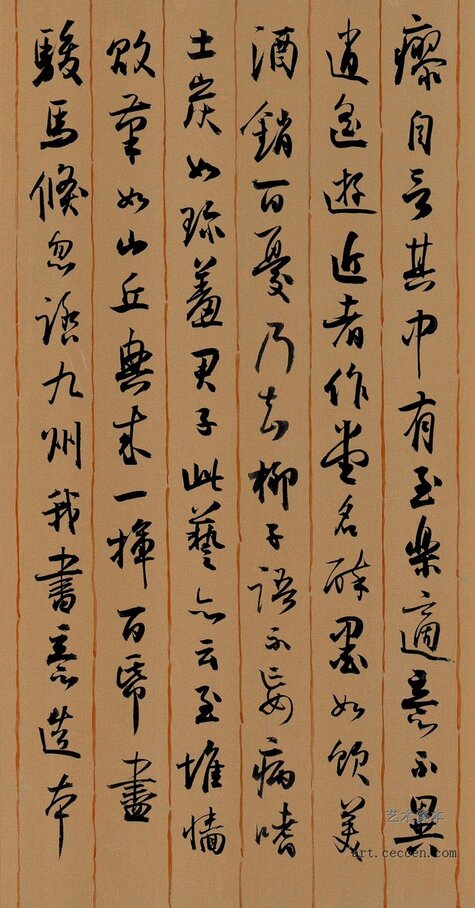 瘳自言其中有至樂適意不異
逍遙遊近者作堂名醉墨如飲美
酒銷百憂乃知柳子語不妄病嗜
土炭如珍羞君于此藝亦云至堆牆
敗筆如山丘興來一揮百帋盡
駿馬倏忽踏九州我書意造本
art.ceccen.com